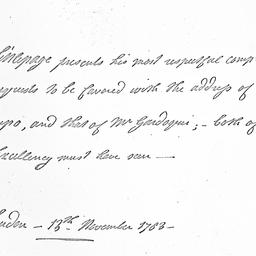 Littlepage presents his most respectful comp
equests to be favored with the address of
mpo, and that of Mr Gardoqui; - both of
Excellency must have seen —
ondon - 13th November 1783 -